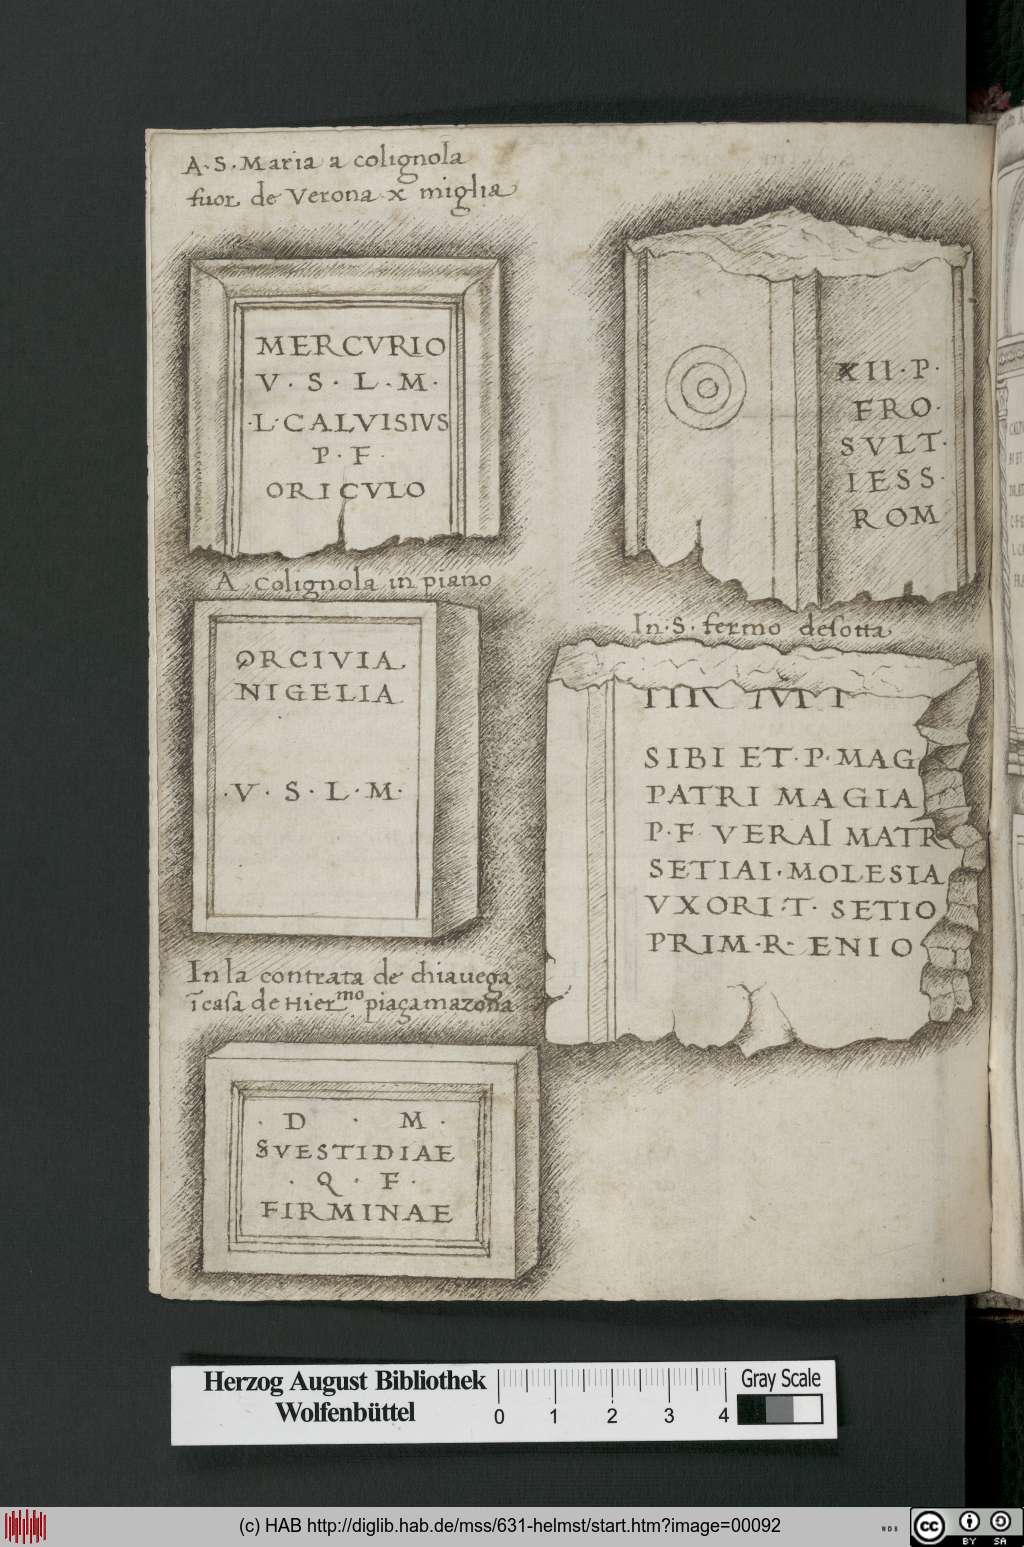 A·S·Maria a colignola
fuor de Verona x miglia
MERCVRIO
V·S·L·M·
·L·CALVISIVS
P·F·
ORICVLO
A colignola in piano
ORCIVIA
NIGELIA
·V·S·L·M·
In la contrata de chiauega
ī casa de Hier.mo piaçamazona
·D·M·
SVESTIDIAE
·Q·F·
FIRMINAE
XII·P·
FRO·
SVLT·
IESS·
ROM
In·S·fermo desotta
SIBI ET·P·MAG
PATRI MAGIA
P·F VERAI MATR
SETIAI·MOLESIA
VXORI·T·SETIO
PRIM·R·ENIO
Herzog August Bibliothek
Wolfenbüttel
0 1 2 3 4
Gray Scale
(c) HAB http://diglib.hab.de/mss/631-helmst/start.htm?image=00092
WDB
cc
BY SA